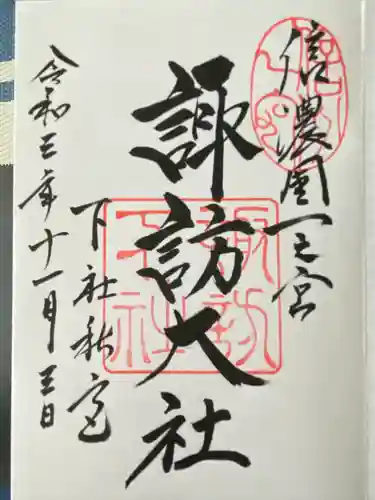 信濃國一之宮
諏訪大社
下社秋宮
令和三年十一月三日
諏訪
下社